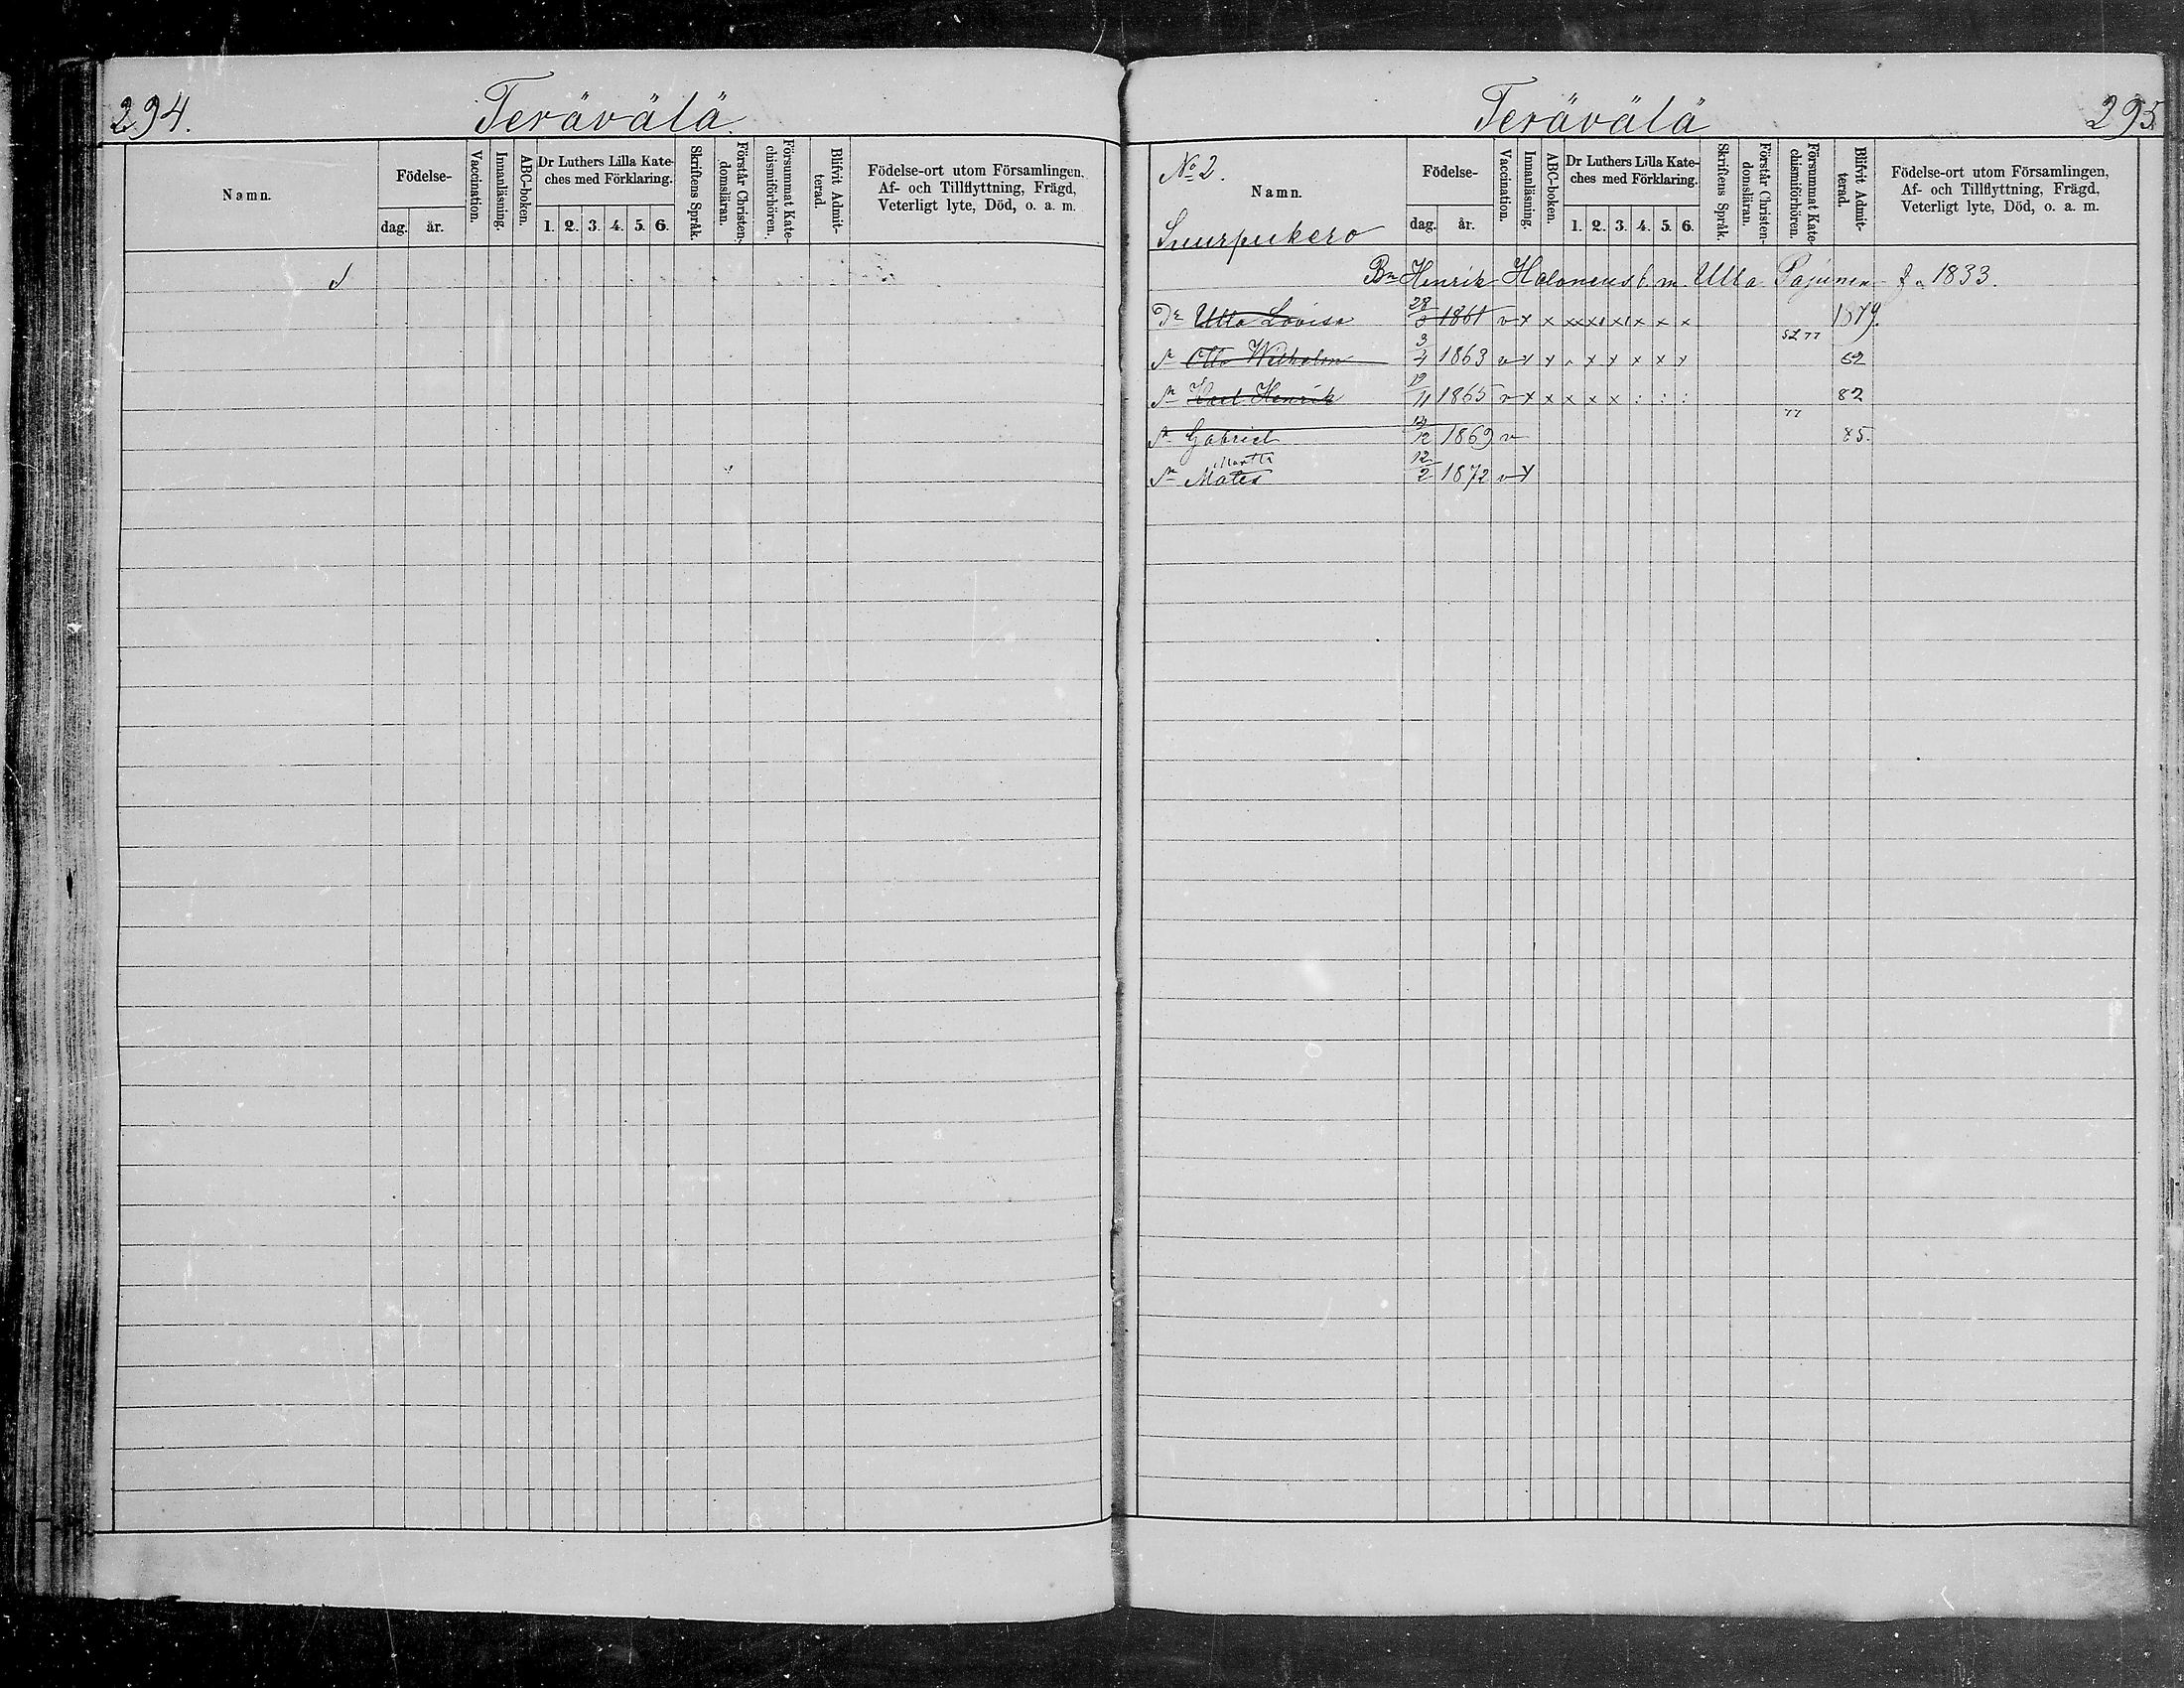 294.
Terävälä
Namn.
Födelse-
dag.
år.
Vaccination.
Innanläsning.
ABC-boken.
Dr Luthers Lilla Kate-
ches med Förklaring.
1. 2. 3. 4. 5. 6.
Skriftens Språk.
Förstår Christen-
domsläran.
Försummat Kate-
chismiförhören.
Blifvit Admit-
terad.
Födelse-ort utom Församlingen.
Af- och Tillflyttning, Frägd,
Veterligt lyte, Död, o. a. m.
Terävälä
295
No 2.
Namn.
Suurpukero
Födelse-
dag.
år.
Vaccination.
Innanläsning.
ABC-boken.
Dr Luthers Lilla Kate-
ches med Förklaring.
1. 2. 3. 4. 5. 6.
Skriftens Språk.
Förstår Christen-
domsläran.
Försummat Kate-
chismiförhören.
Blifvit Admit-
terad.
Födelse-ort utom Församlingen,
Af- och Tillflyttning, Frägd,
Veterligt lyte, Död, o. a. m.
Bn Henrik Halonens b. m. Ulla Pajunen f. 1833.
Dr Ulla Lovisa 1861 v x x x x x x x x 1879.
Sn Otto Wilhelm 3/4 1863 v x x x x x x x 77 82
Sn Karl Henrik 19/11 1865 v x x x x x : : : 82
Sn Gabriel 1869 v 77 85.
Sn Mates Martti 12/2 1872 v x